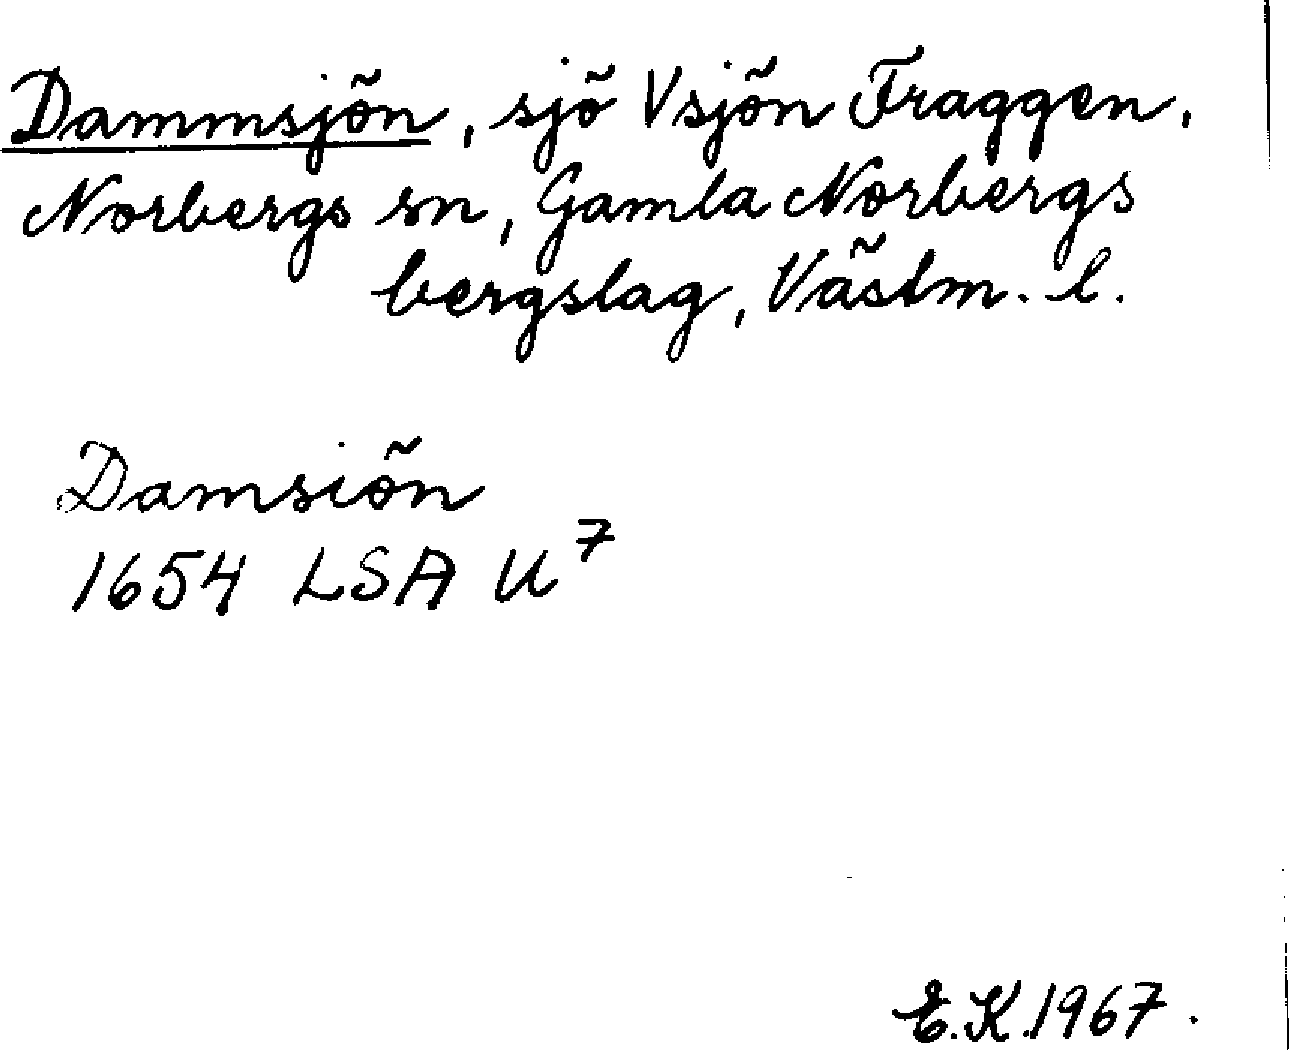 Dammsjön, sjö V sjön Fraggen,
Norbergs sn, Gamla Norbergs
bergslag, Västm. l.
Damsiön
1654 LSA U⁷
E.K. 1967.